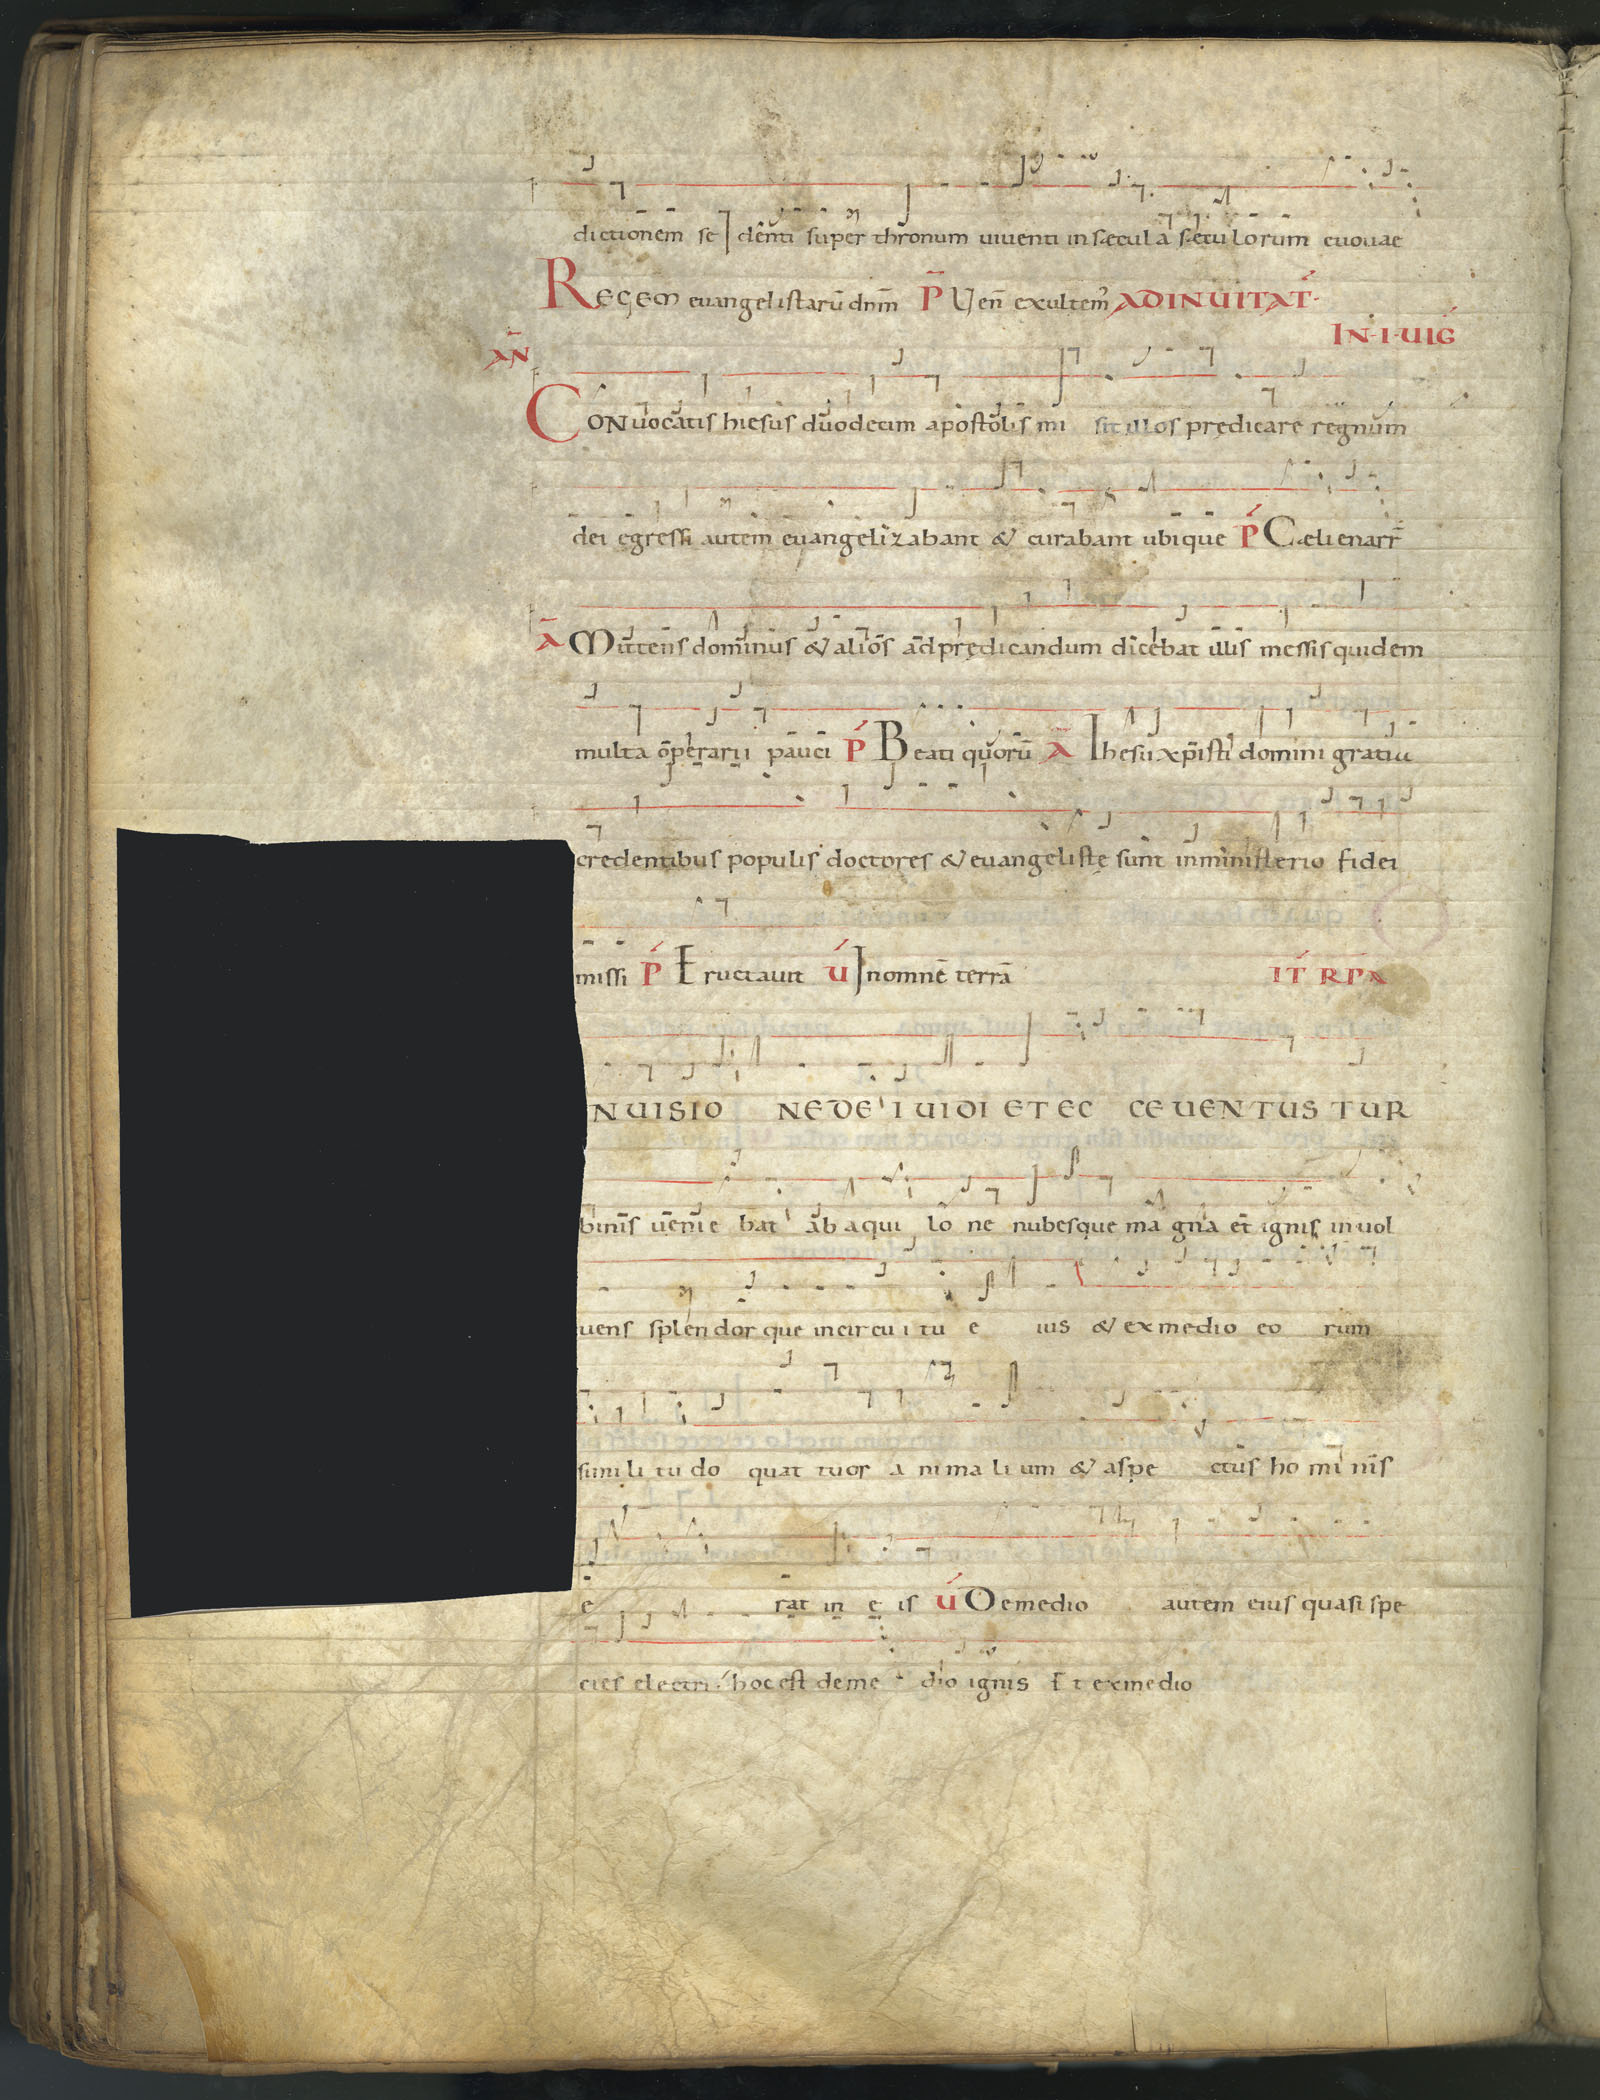 dictionem se denti super thronum viventi in sæcula sæculorum evovae
Regem evangelistarū dnm̄ P̄ Ven̄ exultem' AD INVITAT̄
IN·I·VIḠ
AN̄
Convocatis hiesus duodecim apostolis mi sit illos prędicare regnum
dei egressi autem evangelizabant & curabant ubique P̄ Cæli enarr̄
Ā Mittens dominus & alios ad prędicandum dicebat illis messis quidem
multa operarii pauci P̄ Beati quorū Ā Ihesu xp̄isti domini gratia
credentibus populis doctores & evangelistę sunt in ministerio fidei
missi P̄ Eructavit V̄ In omnē terrā ĪT RPA
N VISIO NE DEI VIDI ET EC CE VENTUS TUR
binis venie bat ab aqui lo ne nubesque ma gna et ignis invol
vens splendorque in circu i tu e ius & ex medio eo rum
simili tu do quat tuor a ni ma li um & aspe ctus ho mi nis
e rat in e is V̄ De medio autem eius quasi spe
cies electri hoc est de me dio ignis Et ex medio